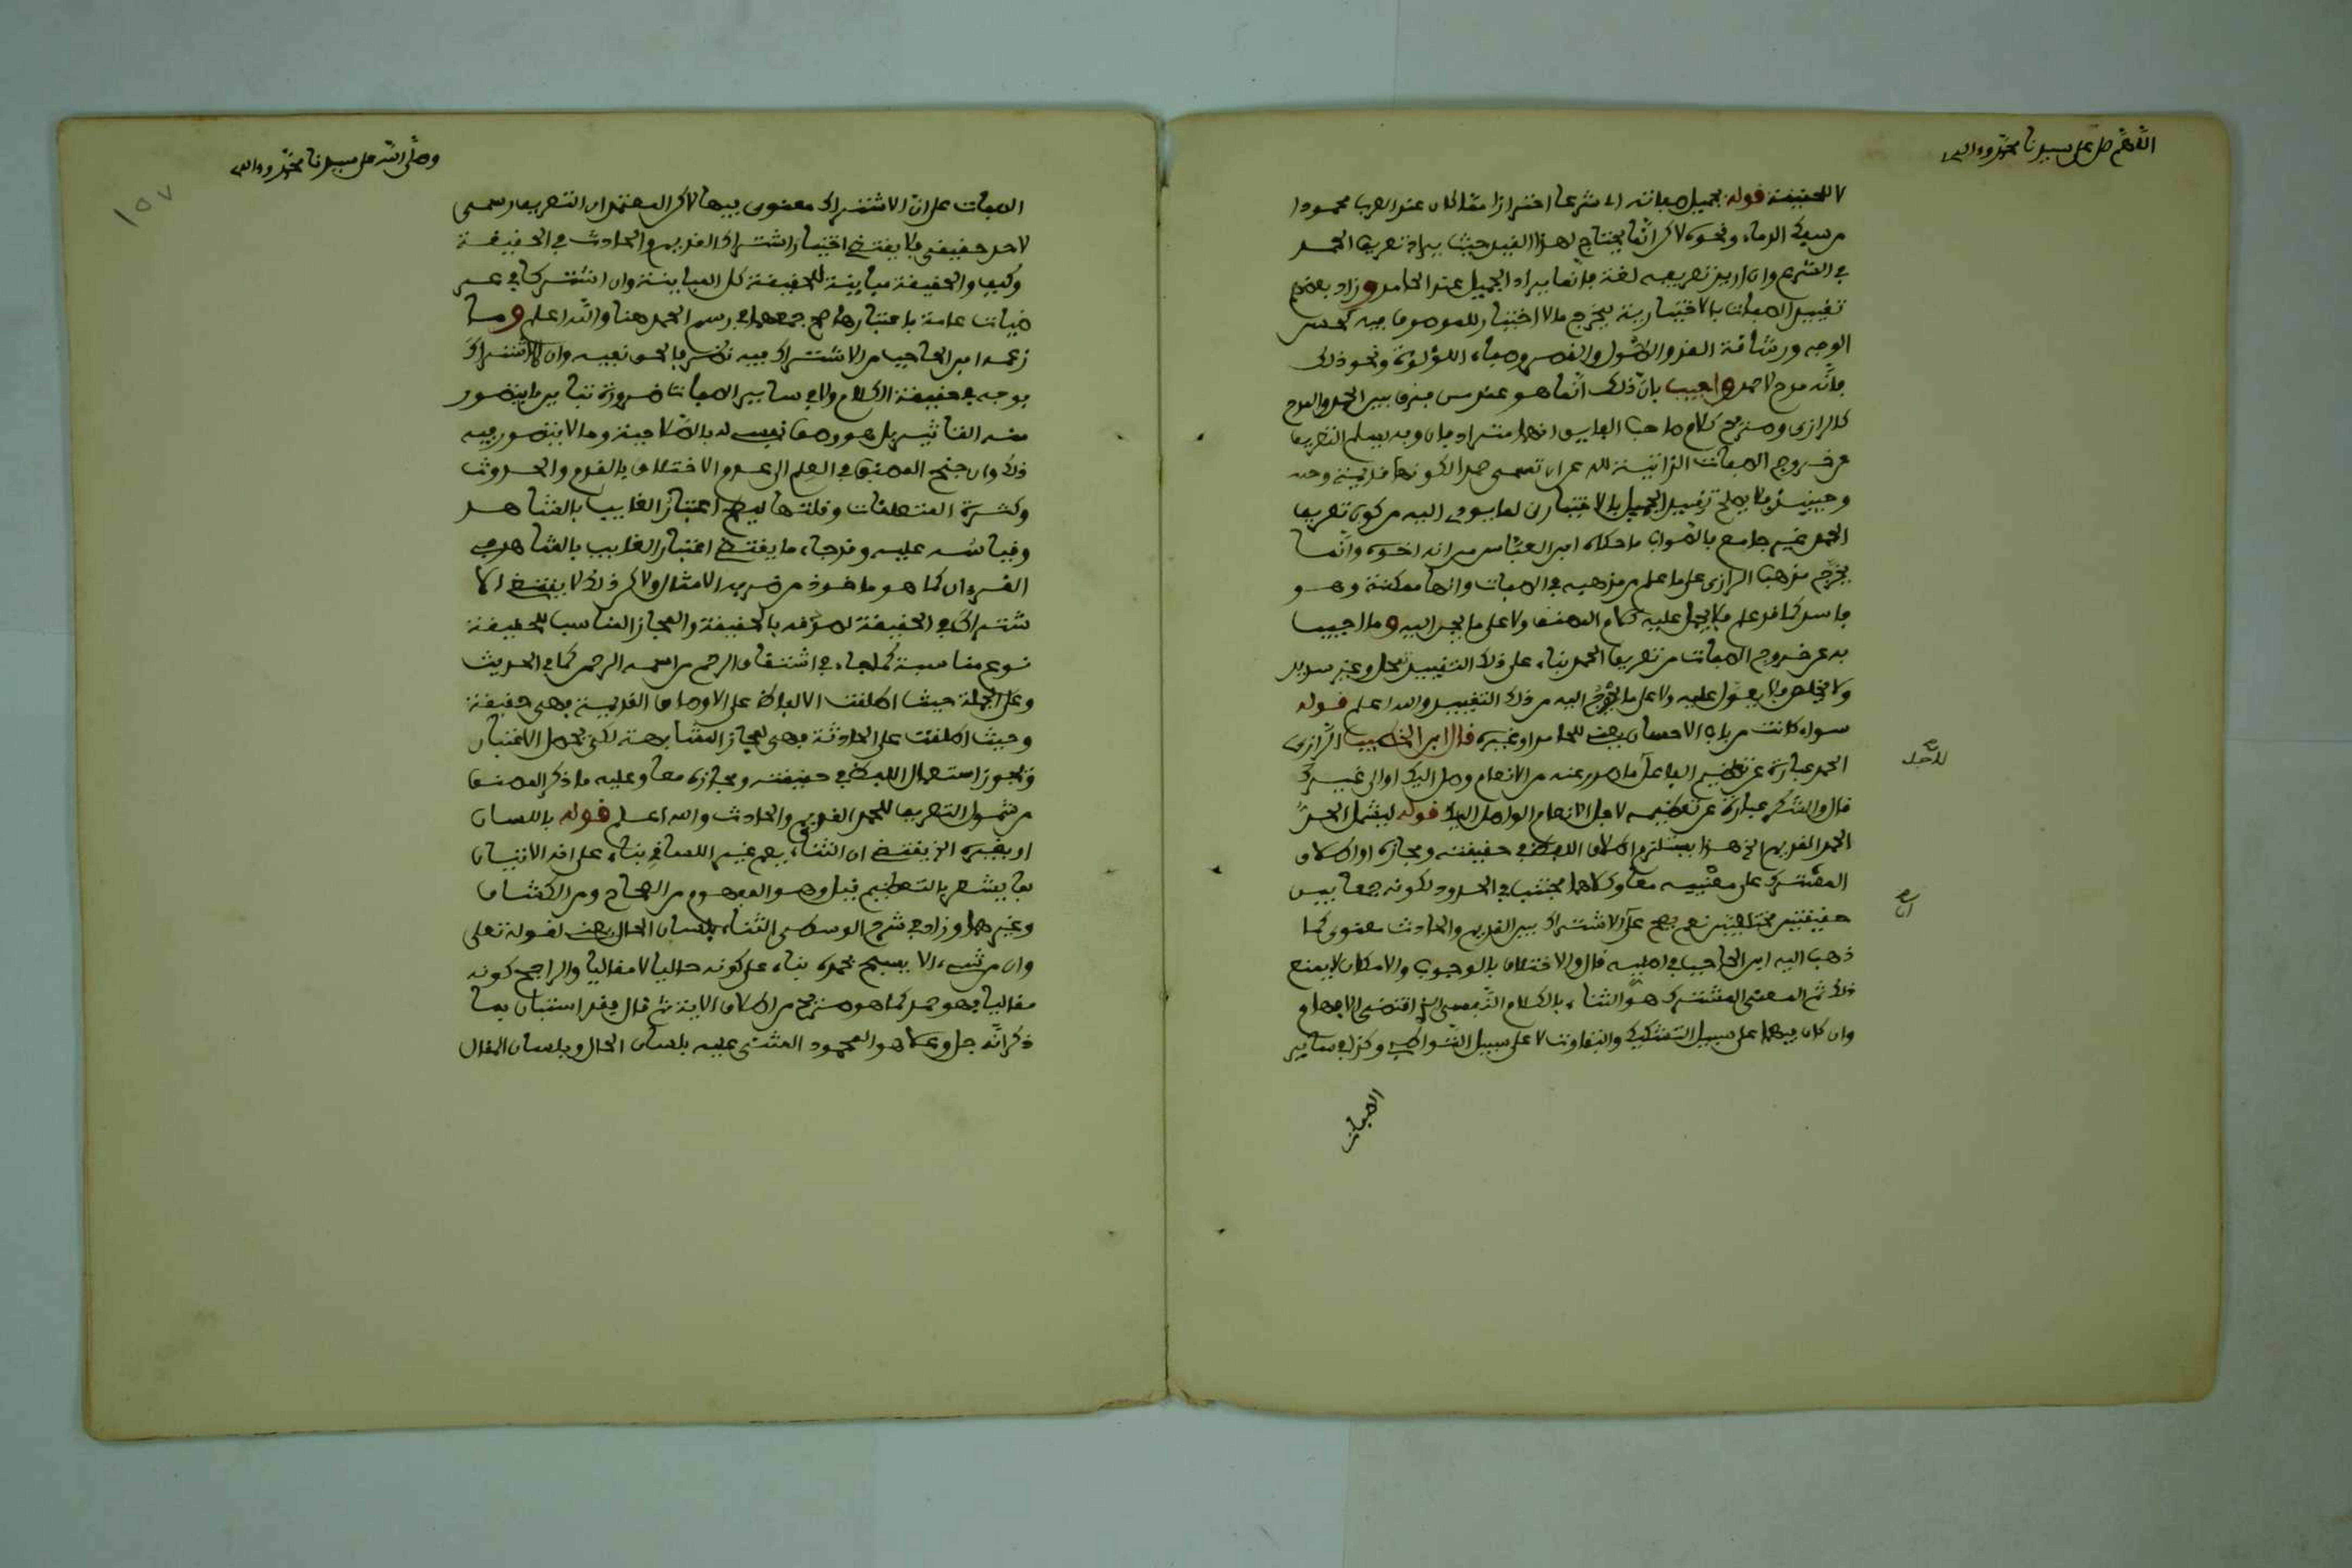 اللهم صل على سيدنا محمد وءاله
لا للحقيقة قوله بجميل صفاته اي شرعا احترازا مما كان عند العرب محمودا
من سفك الدماء ونحوه لاكن انما يحتاج لهذا القيد حيث يراد تعريف الحمد
في الشرع وان اريد تعريفه لغة فانما يراد الجميل عند الحامد وزاد بعضهم
تقييد الصفات بالاختيارية ليخرج ما لا اختيار للموصوف فيه كحسن
الوجه ورشاقة القد والطول والقصر وصفاء اللؤلؤة ونحو ذلك
فانه مدح لا حمد واجيب بان ذلك انما هو عند من يفرق بين الحمد والمدح
كالرازي وصريح كلام صاحب الفايق انهما مترادفان وبه يسلم التعريف
من خروج الصفات الذاتية لله عن ان تسمى حمدا لكونها قديمة وحده
وحينئذ فلا يصلح تقييد الجميل بالاختياري لما يودي اليه من كون تعريف
الحمد غير جامع بالصواب ما حكاه ابو العباس من انه اخوه وانما
يخرج مذهب الرازي على ما علم من مذهبه في الصفات وانها ممكنة وهو
فاسد كما قد علم فلا يحمل عليه كلام المصنف ولا على ما يجر اليه وما اجيب
به عن خروج الصفات من تعريف الحمد بناء على ذلك التقييد تمحل وغير سديد
ولا مخلص فلا يعول عليه ولا على ما يحوج اليه من ذلك التقييد والله اعلم قوله
سواء كانت من باب الاحسان يعني للحامد او غيره قال ابن الخطيب الرازي
الحمد عبارة عن تعظيم الفاعل ما صدر عنه من الانعام وصل اليك او الى غيرك
لاجل
قال والشكر عبارة عن تعظيمه لاجل الانعام الواصل اليك قوله ليشمل الحد
الحمد القديم الخ هذا يستلزم اطلاق اللفظ في حقيقته ومجازه او اطلاق
المشترك على معنييه معا وكلاهما مجتنب في الحدود لكونه جمعا بين
حقيقتين مختلفتين نعم يصح على الاشتراك بين القديم والحادث معنوي كما
ان
ذهب اليه ابن الحاجب في اصليه قال والاختلاف بالوجوب والامكان لا يمنع
ذلك ثم المعنى المشترك هو الثناء بالكلام النفسي الخ اقتضى الابهام
وان كان فيهما على سبيل التشكيك والتفاوت لا على سبيل التواطي وكذا في ساير
الصفات
وصلى الله على سيدنا محمد وءاله
١٥٧
الصفات على ان الاشتراك معنوي فيها لاكن المعتمد ان التعريف رسمي
لا حد حقيقي فلا يقتضي اختيار اشتراك القديم والحادث في الحقيقة
وكيف والحقيقة مباينة للحقيقة كل المباينة وان اشتركا في عر
ضيات عامة باعتبارها صح جمعهما في رسم الحمد هنا والله اعلم وما
زعمه ابن الحاجب من الاشتراك فيه نظر فالحق نفيه وان لا اشتراك
يوجد في حقيقة الكلام ولا في ساير الصفات ضرورة تباين ما يتصور
منه التاثير بل هو وصف نفسي له بالصلاحية وما لا يتصور فيه
ذلك وان جنح المصنف في العلم الى عدم الاختلاف بالقدم والحدوث
وكثرة المتعلقات وقلتها ليصح اعتبار الغايب بالشاهد
وقياسه عليه وقد جاء ما يقتضي اعتبار الغايب بالشاهد في
القرءان كما هو ماخوذ من ضرب الامثال ولاكن ذلك لا يقتضي الا
شتراك في الحقيقة لصدقه بالحقيقة والمجاز المناسب للحقيقة
نوع مناسبة كما جاء في اشتقاق الرحم من اسمه الرحمن كما في الحديث
وعلى الجملة حيث اطلقت الالفاظ على الاوصاف القديمة فهي حقيقة
وحيث اطلقت على الحادثة فهي لمجاز المشابهة لكن نحمل الاعتبار
ونجوز استعمال اللفظ في حقيقته ومجازه معا وعليه ما ذكر المصنف
من شمول التعريف للحمد القديم والحادث والله اعلم قوله باللسان
او بغيره الخ يقتضي ان الثناء يعم غير اللساني بناء على انه الاتيان
بما يشعر بالتعظيم قيل وهو المفهوم من الصحاح ومن الكشاف
وغيرهما وزاد في شرح الوسطى الثناء بلسان الحال يعني لقوله تعلى
وان من شيء الا يسبح بحمده بناء على كونه حاليا لا مقاليا والراجح كونه
مقاليا فهو حمد كما هو صريح من اطلاق الاية ثم قال فقد استبان بما
ذكر انه جل وعلا هو المحمود المثنى عليه بلسان الحال وبلسان المقال